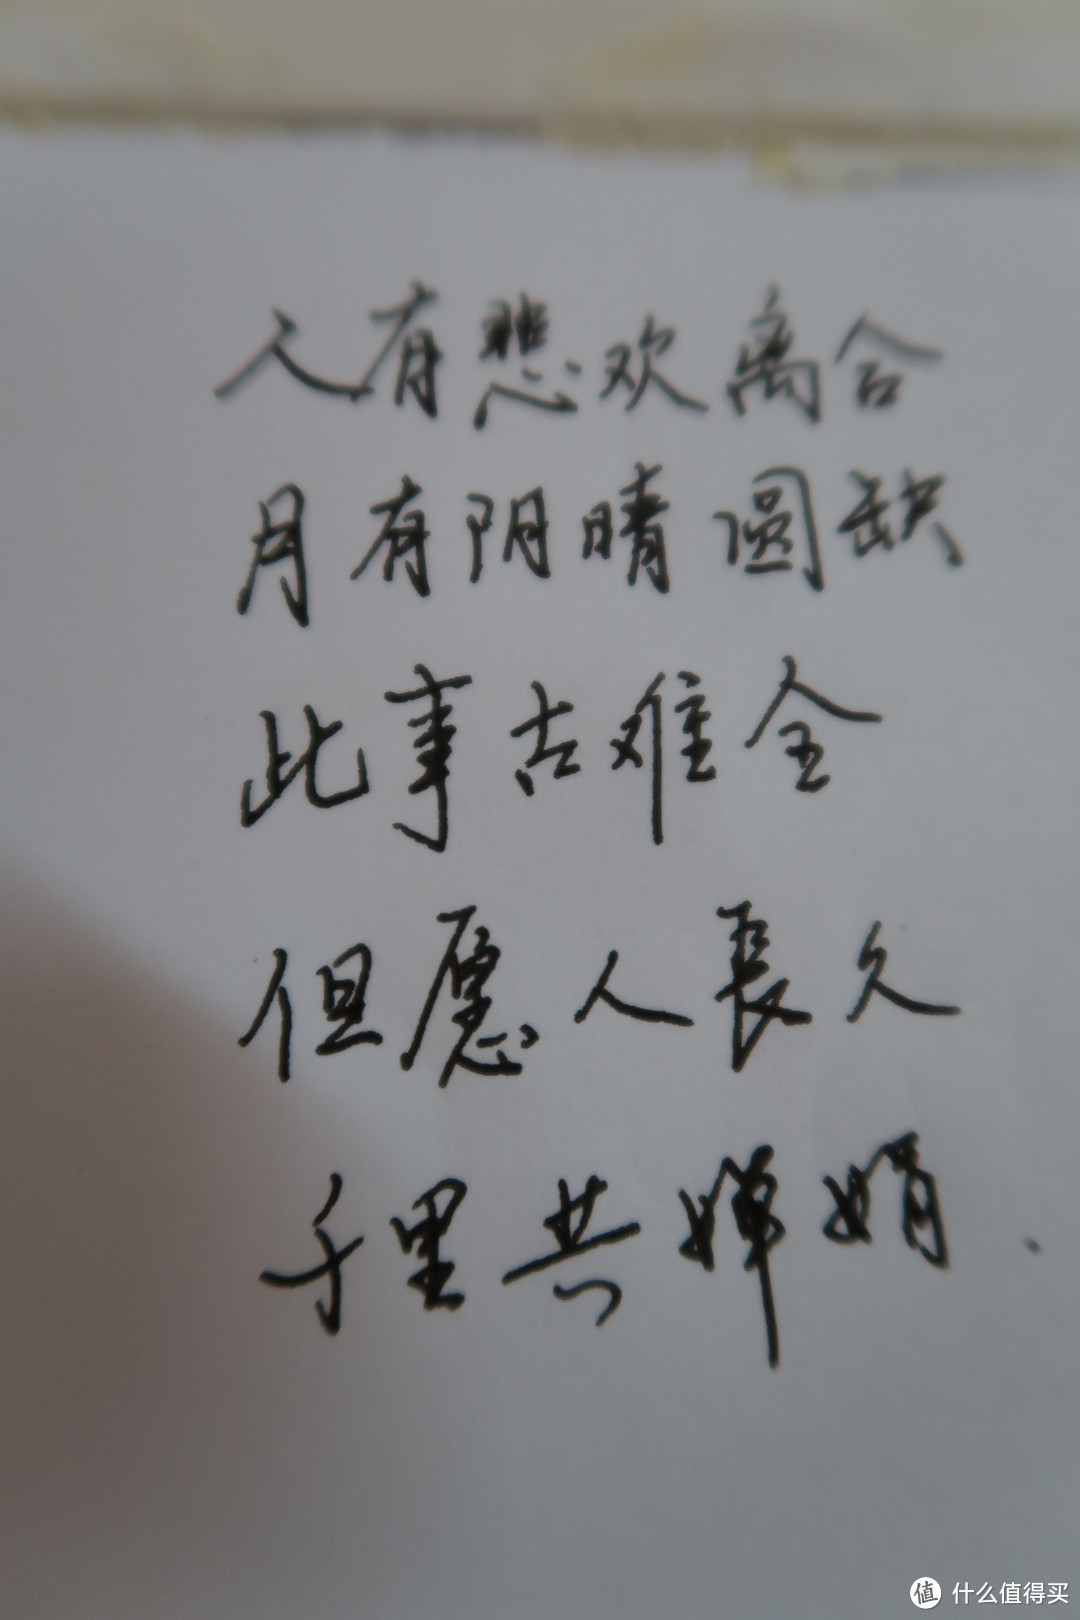 人有悲欢离合
月有阴晴圆缺
此事古难全
但愿人長久
千里共婵娟.
值 什么值得买